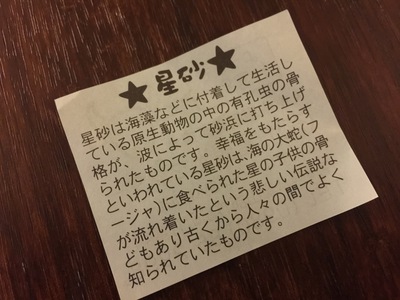 ★星砂★
星砂は海藻などに付着して生活し
ている原生動物の中の有孔虫の骨
格が、波によって砂浜に打ち上げ
られたものです。幸福をもたらす
といわれている星砂は、海の大蛇(フ
ージャ)に食べられた星の子供の骨
が流れ着いたという悲しい伝説な
どもあり古くから人々の間でよく
知られていたものです。